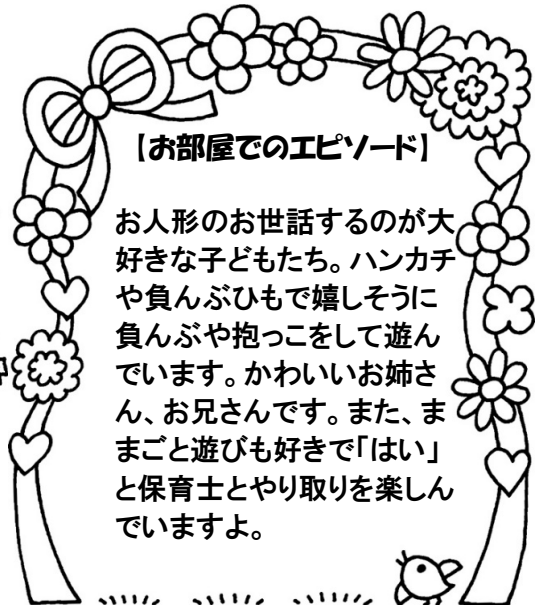 【お部屋でのエピソード】
お人形のお世話するのが大
好きな子どもたち。ハンカチ
や負んぶひもで嬉しそうに
負んぶや抱っこをして遊ん
でいます。かわいいお姉さ
ん、お兄さんです。また、ま
まごと遊びも好きで「はい」
と保育士とやり取りを楽しん
でいますよ。